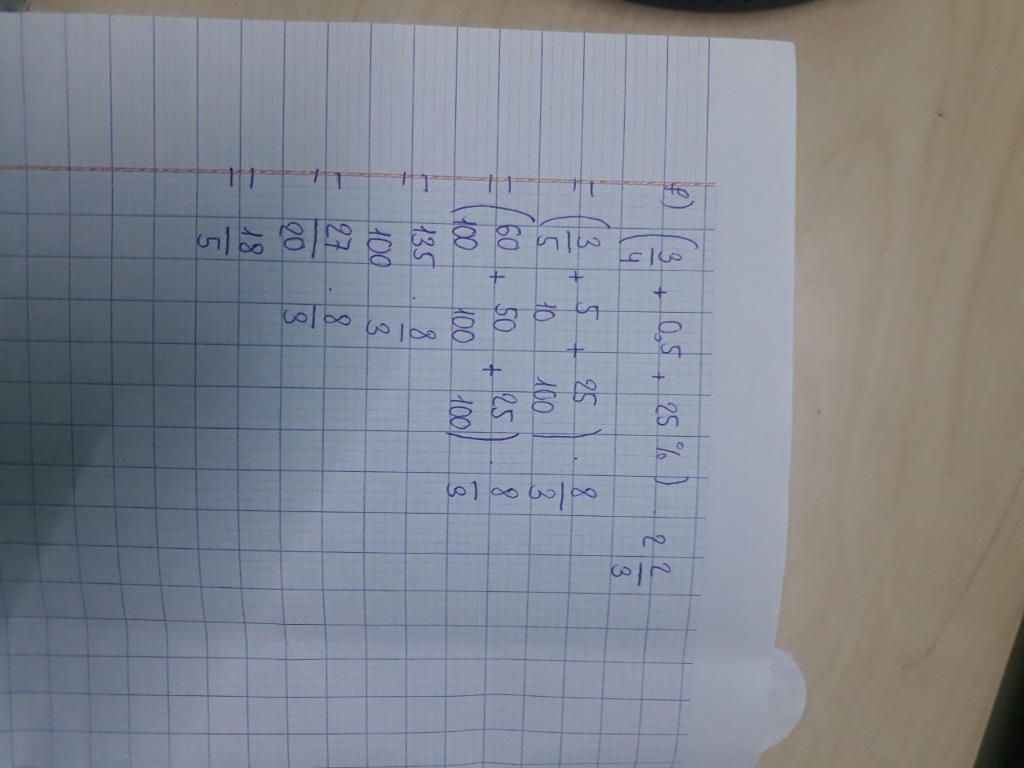 f) (3/4 + 0,5 + 25 %) . 2 2/3
= (3/5 + 5/10 + 25/100) . 8/3
= (60/100 + 50/100 + 25/100) . 8/3
= 135/100 . 8/3
= 27/20 . 8/3
= 18/5